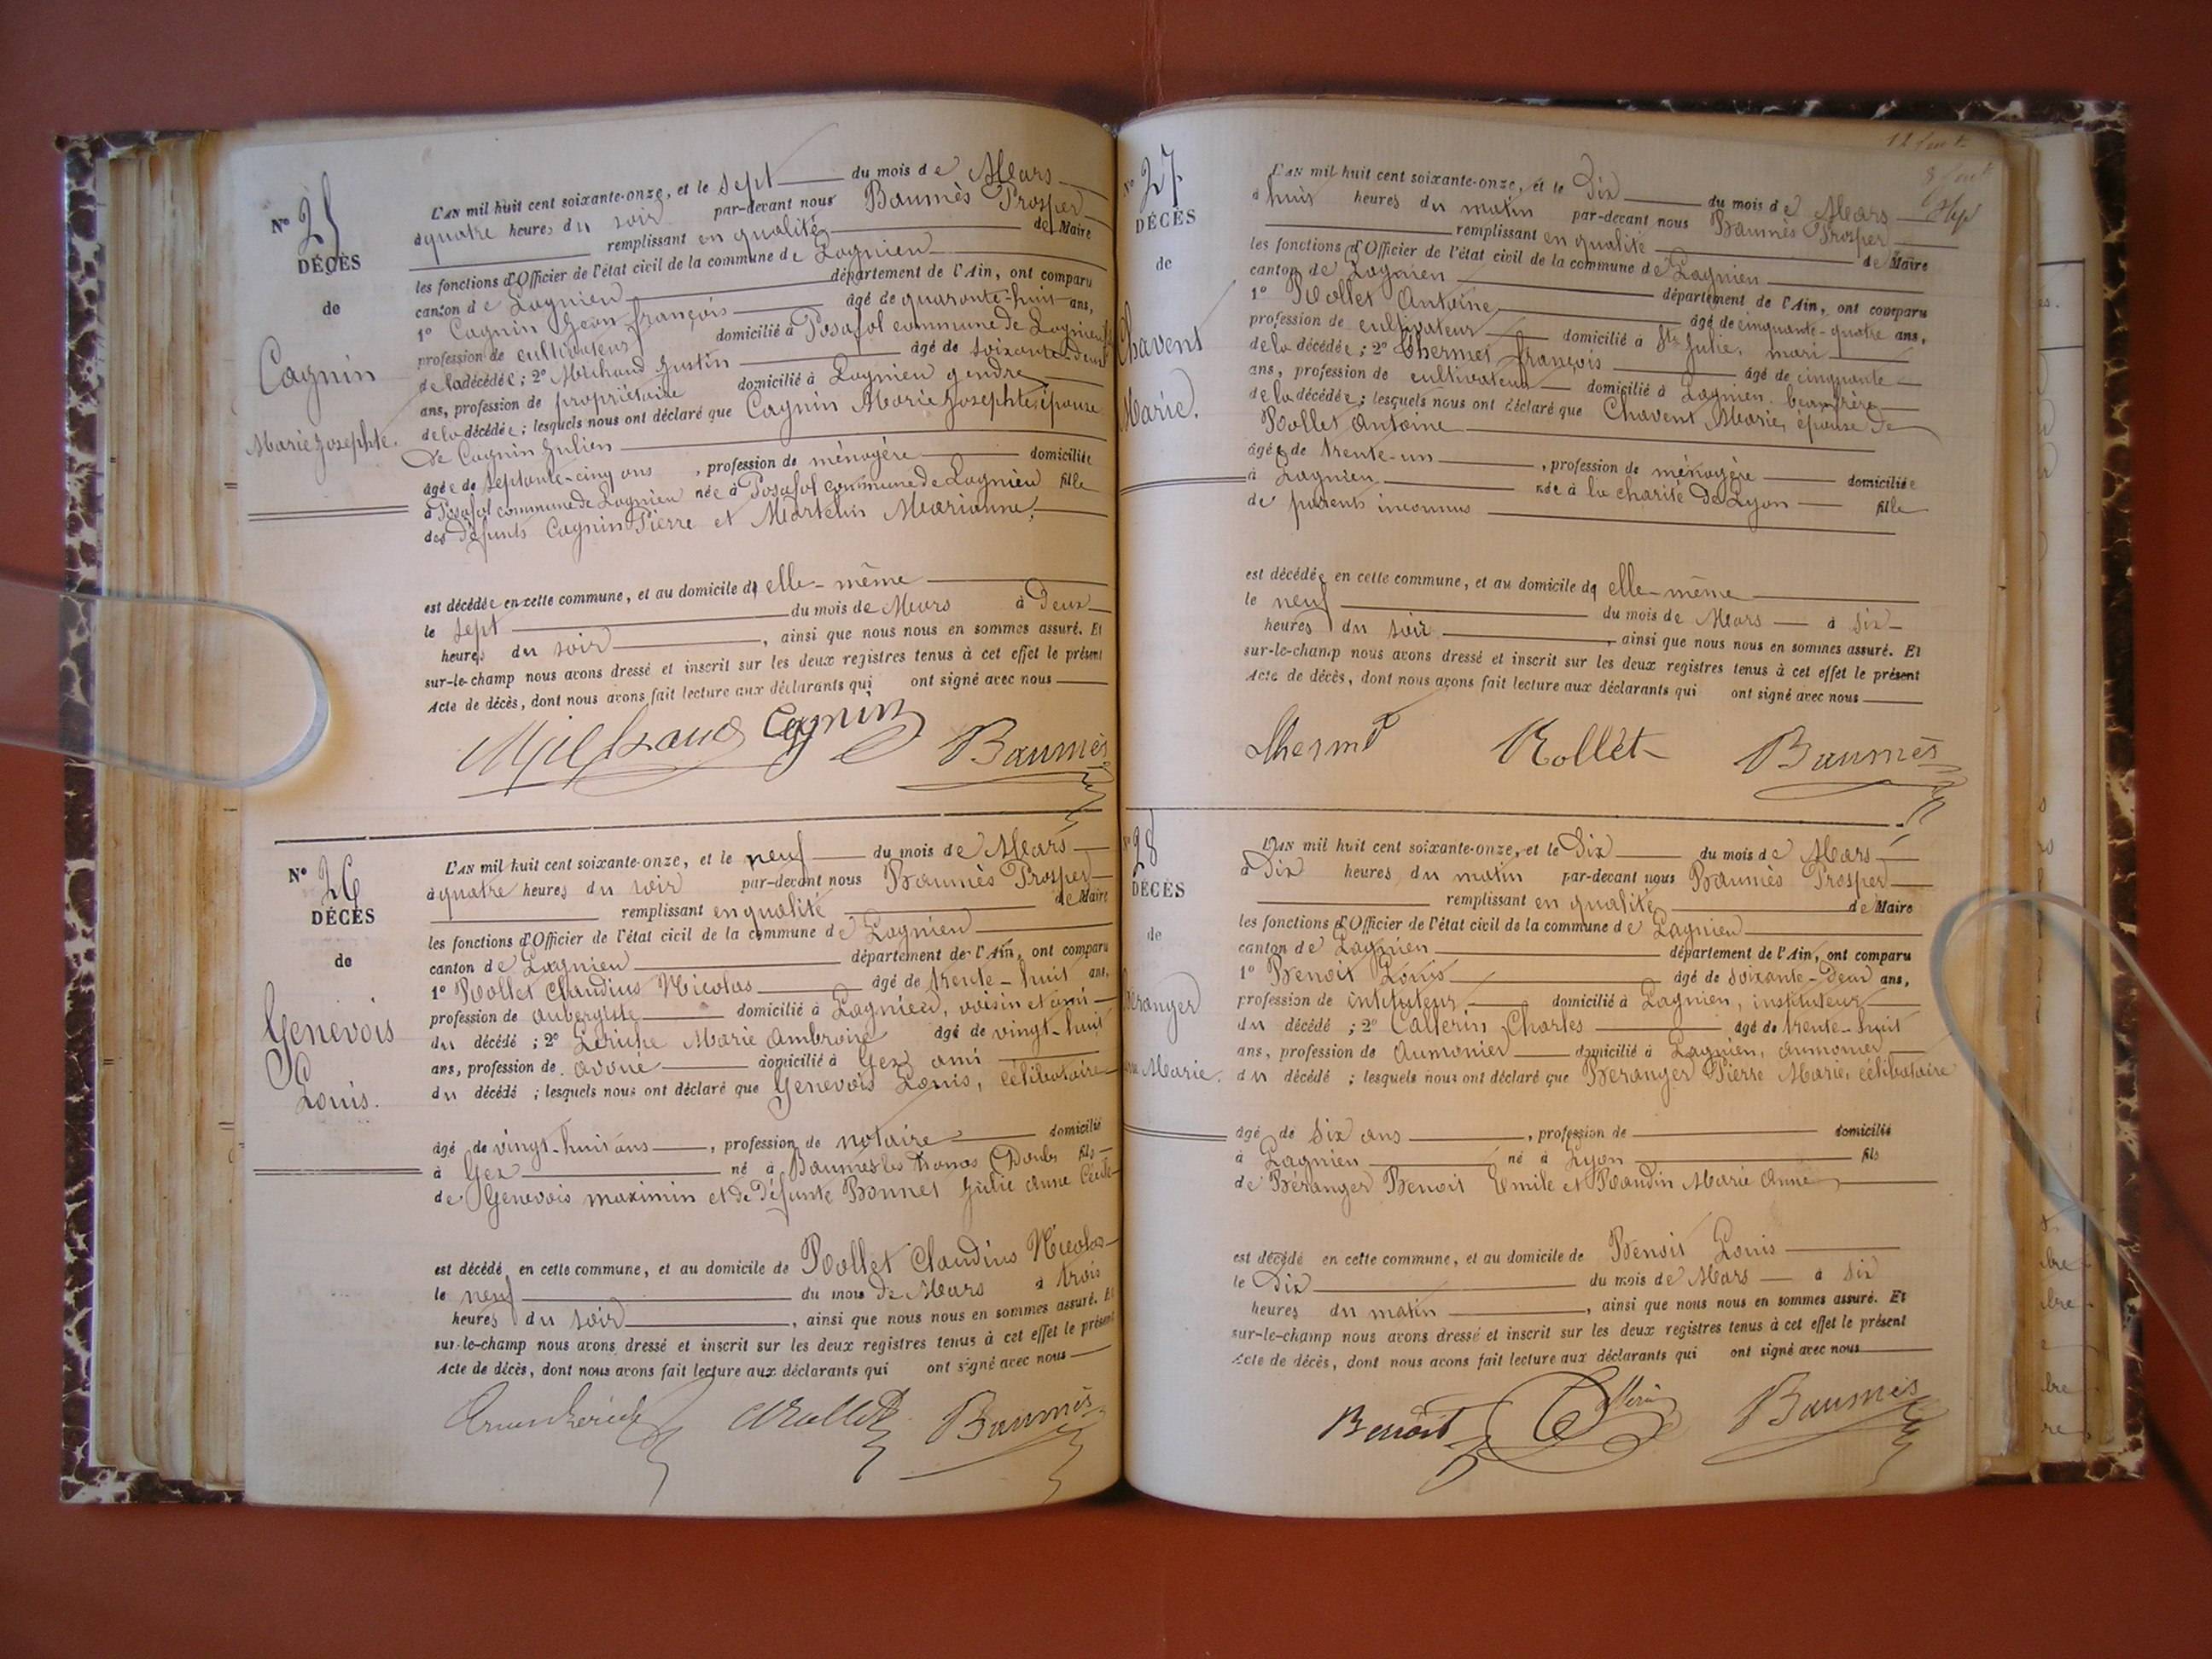 N° 25
DÉCÈS
de
Cagnin
Marie Josephte.
L'AN mil huit cent soixante-onze, et le sept du mois de Mars
à quatre heures du soir par-devant nous Baumès Prosper
remplissant en qualité de Maire
les fonctions d'Officier de l'état civil de la commune de Lagnieu
canton de Lagnieu département de l'Ain, ont comparu
1° Cagnin Jean françois âgé de quarante-huit ans,
profession de cultivateur domicilié à Posafol commune de Lagnieu
de la décédée ; 2° Justin âgé de soixante-deux
ans, profession de propriétaire domicilié à Lagnieu gendre
de la décédée ; lesquels nous ont déclaré que Cagnin Marie Josephte, épouse
de Cagnin Julien
âgée de septante-cinq ans, profession de ménagère domiciliée
à Posafol commune de Lagnieu née à Posafol commune de Lagnieu fille
des défunts Cagnin Pierre et Martelin Marianne,
est décédée en cette commune, et au domicile d'elle-même
le sept du mois de Mars à Deux
heures du soir, ainsi que nous nous en sommes assuré. Et
sur-le-champ nous avons dressé et inscrit sur les deux registres tenus à cet effet le présent
Acte de décès, dont nous avons fait lecture aux déclarants qui ont signé avec nous
Cagnin Baumès
N° 26
DÉCÈS
de
Genevois
Louis.
L'AN mil huit cent soixante-onze, et le neuf du mois de Mars
à quatre heures du soir par-devant nous Baumès Prosper
remplissant en qualité de Maire
les fonctions d'Officier de l'état civil de la commune de Lagnieu
canton de Lagnieu département de l'Ain, ont comparu
1° Rollet Claudius Nicolas âgé de trente-huit ans,
profession de aubergiste domicilié à Lagnieu, voisin et ami
du décédé ; 2° Leriche Marie Ambroise âgé de vingt-huit
ans, profession de avoué domicilié à Gex ami
du décédé ; lesquels nous ont déclaré que Genevois Louis, célibataire
âgé de vingt-huit ans, profession de notaire domicilié
à Gex né à Baumes les Dames (Doubs fils
de Genevois maximin et de Défunte Bonnet Julie Anne Cécile
est décédé en cette commune, et au domicile de Rollet Claudius Nicolas
le neuf du mois de Mars à trois
heures du soir, ainsi que nous nous en sommes assuré. Et
sur-le-champ nous avons dressé et inscrit sur les deux registres tenus à cet effet le présent
Acte de décès, dont nous avons fait lecture aux déclarants qui ont signé avec nous
Baumès
N° 27
DÉCÈS
de
Chavent
Marie.
L'AN mil huit cent soixante-onze, et le Dix du mois de Mars
à huit heures du matin par-devant nous Baumès Prosper
remplissant en qualité de Maire
les fonctions d'Officier de l'état civil de la commune de Lagnieu
canton de Lagnieu département de l'Ain, ont comparu
1° Rollet Antoine âgé de cinquante-quatre ans,
profession de cultivateur domicilié à Ste Julie, mari
de la décédée ; 2° Thermet françois âgé de cinquante
ans, profession de cultivateur domicilié à Lagnieu. beau-frère
de la décédée ; lesquels nous ont déclaré que Chavent Marie, épouse de
Rollet Antoine
âgée de trente-un, profession de ménagère domiciliée
à Lagnieu née à la charité de Lyon fille
de parents inconnus
est décédée en cette commune, et au domicile d'elle-même
le neuf du mois de Mars à six
heures du soir, ainsi que nous nous en sommes assuré. Et
sur-le-champ nous avons dressé et inscrit sur les deux registres tenus à cet effet le présent
Acte de décès, dont nous avons fait lecture aux déclarants qui ont signé avec nous
Rollet Baumès
28
DÉCÈS
de
L'AN mil huit cent soixante-onze, et le Dix du mois de Mars
à Dix heures du matin par-devant nous Baumès Prosper
remplissant en qualité de Maire
les fonctions d'Officier de l'état civil de la commune de Lagnieu
canton de Lagnieu département de l'Ain, ont comparu
1° Benoit Louis âgé de soixante-Deux ans,
profession de intituteur domicilié à Lagnieu, instituteur
du décédé ; 2° Callerin Charles âgé de trente-huit
ans, profession de Aumonier domicilié à Lagnieu, aumonier
du décédé ; lesquels nous ont déclaré que Beranger Pierre Marie, célibataire
âgé de six ans, profession de domicilié
à Lagnieu né à Lyon fils
de Béranger Benoit Emile et Raudin Marie Anne
est décédé en cette commune, et au domicile de Benoit Louis
le Dix du mois de Mars à six
heures du matin, ainsi que nous nous en sommes assuré. Et
sur-le-champ nous avons dressé et inscrit sur les deux registres tenus à cet effet le présent
Acte de décès, dont nous avons fait lecture aux déclarants qui ont signé avec nous
Benoit Baumès